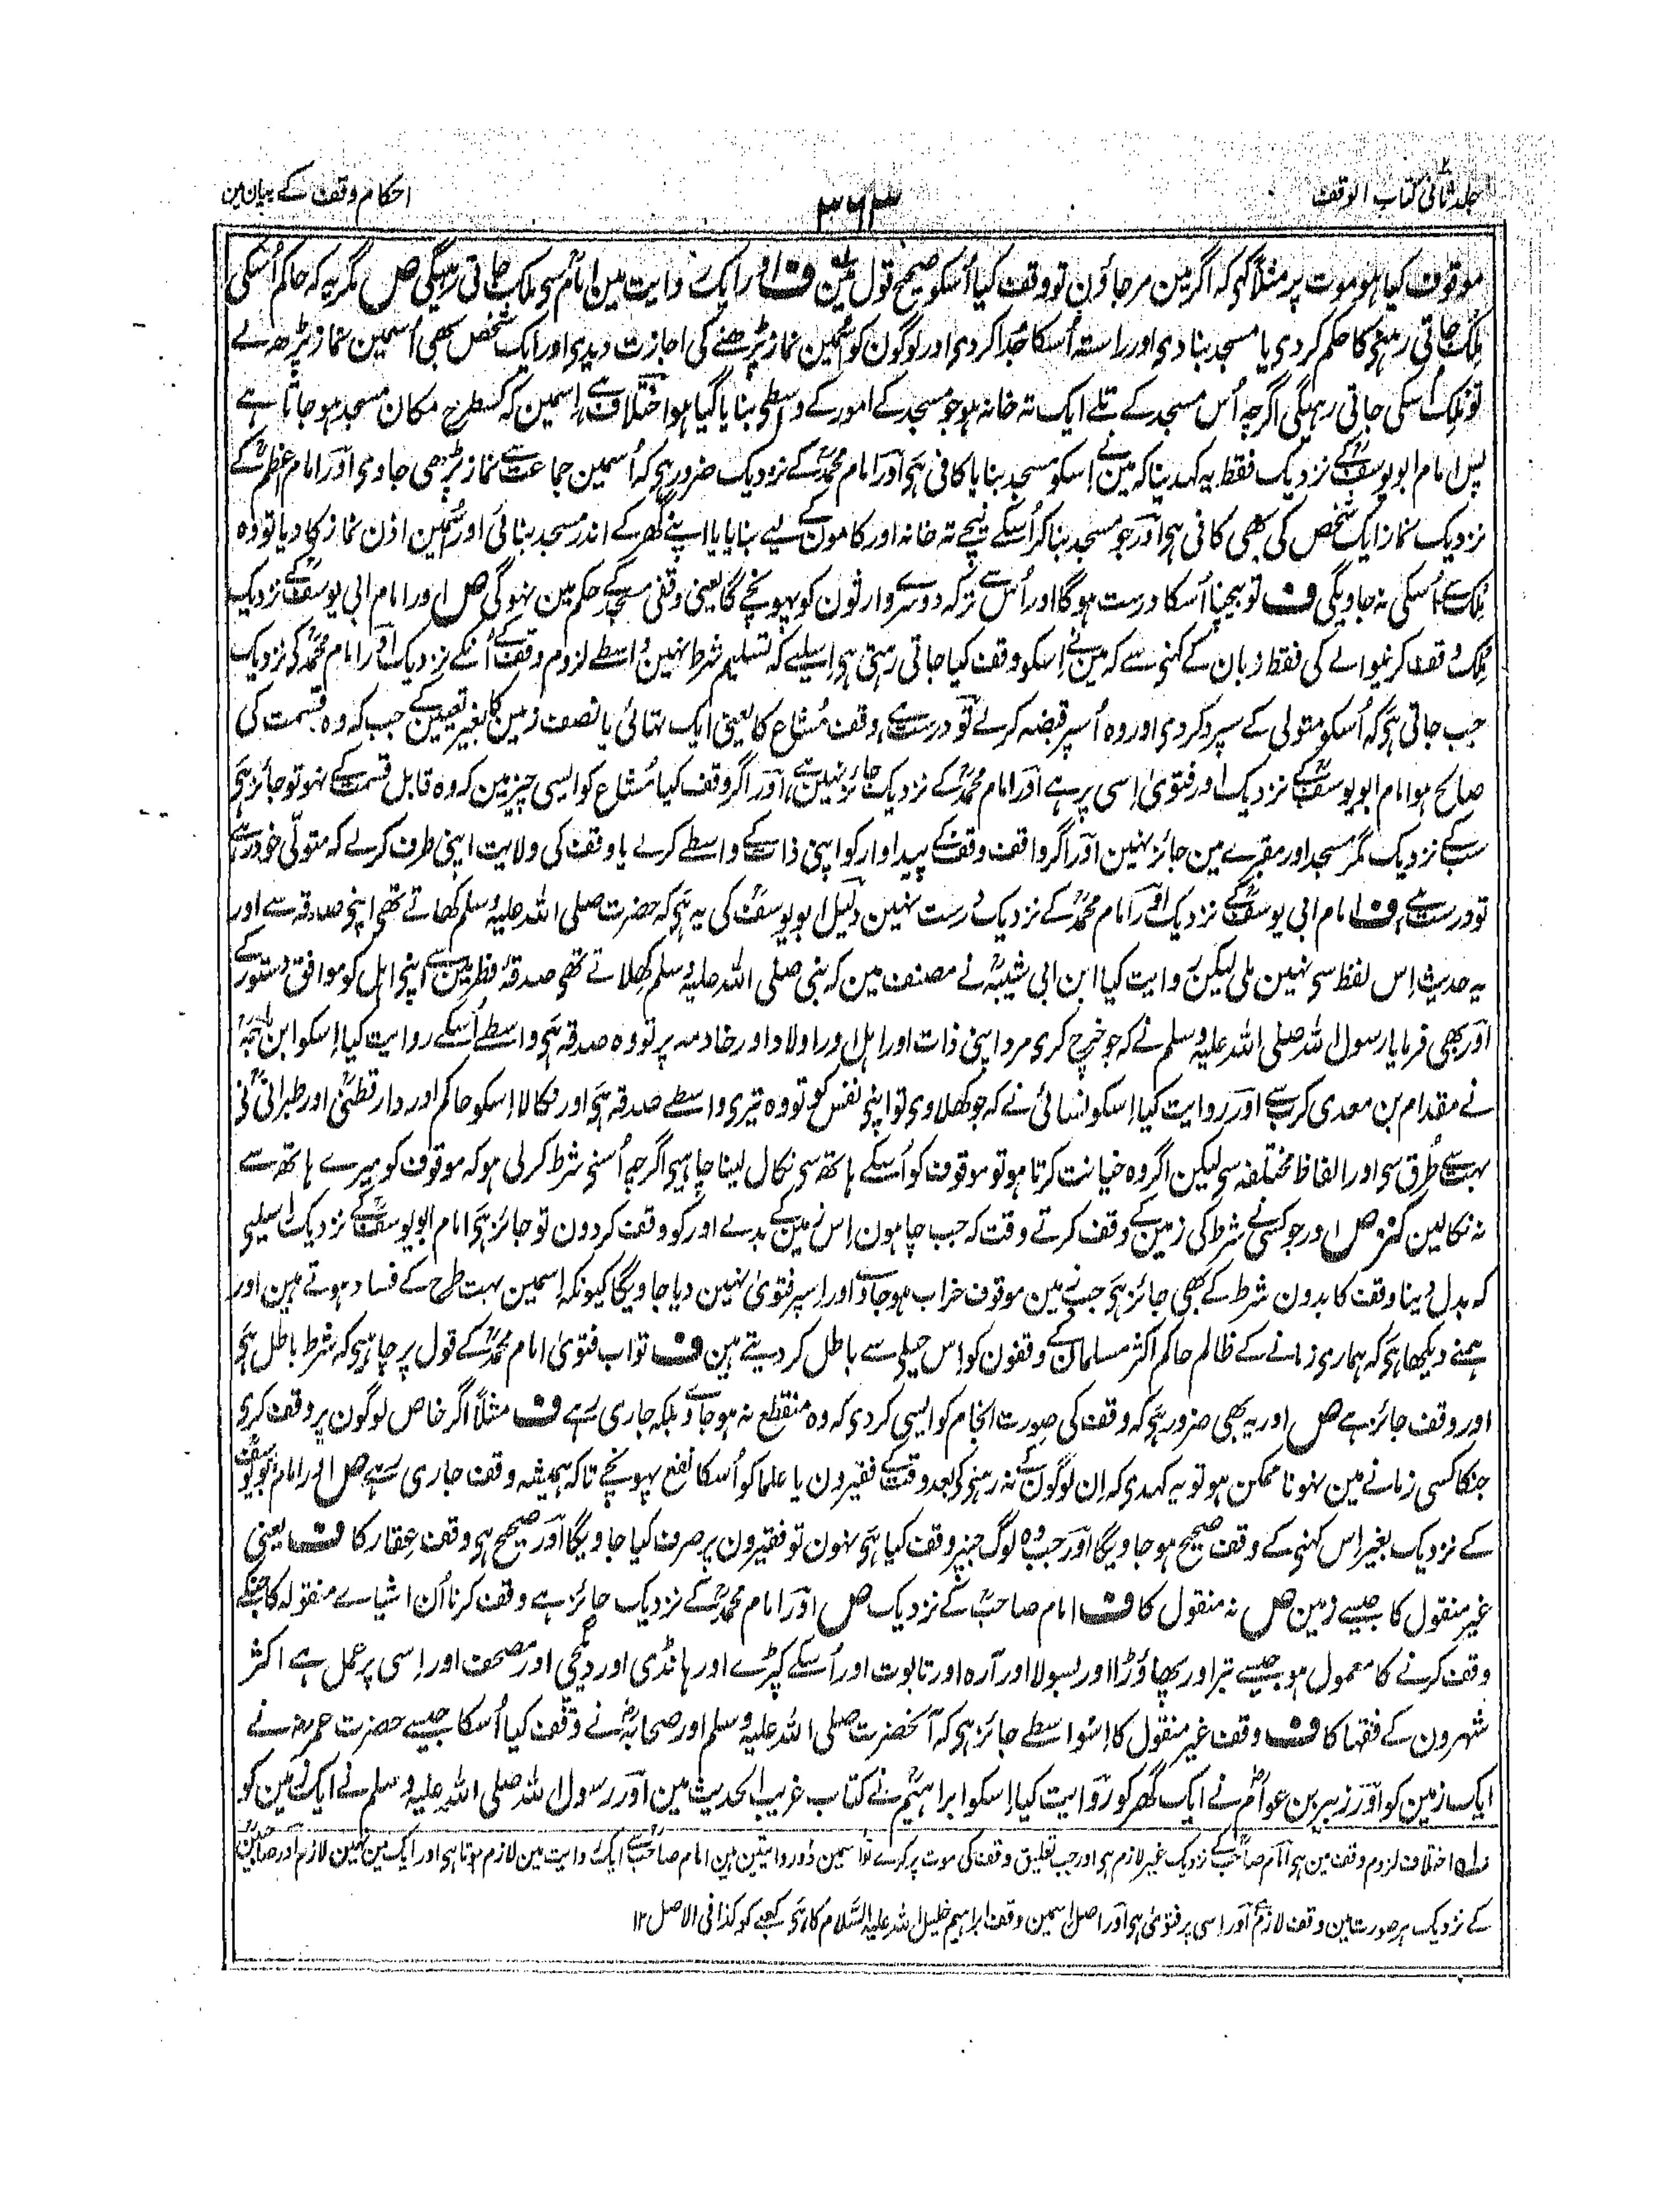 جلد ثانی کتاب الوقف
۳۶۳
احکام وقف کے بیان مین
موقوف کیا ہو موت پر مثلاً کہے کہ اگر مین مر جاؤن تو وقف کیا اُسکو صحیح قول مین ف اور ایک روایت مین امام سے ملک جاتی رہیگی ص مگر یہ کہ حاکم اُسکی
ملک جاتی رہنے کا حکم کر دی یا مسجد بنا دی اور راستہ اُسکا جُدا کر دی اور لوگون کو اُسمین نماز پڑھنے کی اجازت دیدی اور ایک شخص بھی اُسمین نماز پڑھ لے
تو ملک اُسکی جاتی رہیگی اگرچہ اُس مسجد کے تلے ایک تہ خانہ ہو جو مسجد کے امور کے واسطے بنایا گیا ہو اختلاف ہے اِسمین کہ کسطرح مکان مسجد ہو جاتا ہے
پس امام ابو یوسفؒ کے نزدیک فقط یہ کہدینا کہ مین نے اسکو مسجد بنایا کافی ہی اور امام محمدؒ کے نزدیک ضرور ہی کہ اُسمین جماعت سے نماز پڑھی جاوی اور امام اعظمؒ کے
نزدیک نماز ایک شخص کی بھی کافی ہی اور جو مسجد بنا کر اُسکے نیچے تہ خانہ اور کامون کے لیے بنایا یا اپنے گھر کے اندر مسجد بنائی اور اُسمین اذن نماز کا دیا تو وہ
ملک سے اُسکی نہ جاویگی ف تو بیچنا اُسکا درست ہو گا اور اُس سے ترکہ دوسرے وارثون کو پہونچے گا یعنی وقفی مسجد کے حکم مین نہو گی ص اور امام ابی یوسفؒ کے نزدیک
ملک وقف کرنیوالے کی فقط زبان کے کہنے سے کہ مین نے اِسکو وقف کیا جاتی رہتی ہی اِسلیے کہ تسلیم شرط نہین واسطے لزوم وقف کے اُنکے نزدیک اور امام محمدؒ کی نزدیک
جب جاتی ہی کہ اُسکو متولی کے سپرد کر دی اور وہ اُسپر قبضہ کر لے تو درست ہے وقف مُشاع کا یعنی ایک تہائی یا نصف زمین کا بغیر تعیین کے جب کہ وہ قسمت کی
صالح ہو امام ابو یوسفؒ کے نزدیک اور فتویٰ اِسی پر ہے اور امام محمدؒ کے نزدیک جائز نہین ہے اور اگر وقف کیا مُشاع کو ایسی چیز مین کہ وہ قابل قسمت کے نہو تو جائز ہی
سب کے نزدیک مگر مسجد اور مقبرے مین جائز نہین اور اگر واقف وقف کے پیداوار کو اپنی ذات کے واسطے کرلے یا وقف کی ولایت اپنی طرف کرلے کہ متولّی خود رہے
تو درست ہے ف امام ابی یوسفؒ کے نزدیک اور امام محمدؒ کے نزدیک درست نہین دلیل ابو یوسفؒ کی یہ ہی کہ حضرت صلی اللہ علیہ وسلم کھاتے تھے اپنے صدقہ سے اور
یہ حدیث اِس لفظ سی نہین ملی لیکن روایت کیا ابن ابی شیبہؒ نے مصنف مین کہ نبی صلی اللہ علیہ وسلم کھلاتے تھے صدقۂ فطر مین سے اپنے اہل کو موافق دستور کے
اور بھی فرمایا رسول اللہ صلی اللہ علیہ وسلم نے کہ جو خرچ کری مرد اپنی ذات اور اہل اور اولاد اور خادمہ پر تو وہ صدقہ ہی واسطے اُسکے روایت کیا اِسکو ابن ماجہؒ
نے مقدام بن معدی کرب سے اور روایت کیا اِسکو نسائی نے کہ جو کھلاوی تو اپنی نفس کو تو وہ تیری واسطے صدقہ ہی اور نکالا اسکو حاکم اور دارقطنیؒ اور طبرانیؒ نے
بہت سے طُرق سی اور الفاظ مختلفہ سی لیکن اگر وہ خیانت کرتا ہو تو موقوف کو اُسکے ہاتھ سی نکال لینا چاہیے اگرچہ اُسنے شرط کر لی ہو کہ موقوف کو میرے ہاتھ سے
نہ نکالین کنز ص اور جو کسی نے شرط کی زمین کے وقف کرتے وقت کہ جب چاہون اِس زمین کے بدلے اور کو وقف کر دون تو جائز ہی امام ابو یوسفؒ کے نزدیک اسلیے
کہ بدل دینا وقف کا بدون شرط کے بھی جائز ہی جب زمین موقوف خراب ہو جاوے اور اِسپر فتویٰ نہین دیا جاویگا کیونکہ اِسمین بہت طرح کے فساد ہوتے ہین اور
ہمنے دیکھا ہی کہ ہماری زمانے کے ظالم حاکم اکثر مسلمانون کے وقفون کو اِس حیلے سے باطل کر دیتے ہین ف تو اب فتویٰ امام محمدؒ کے قول پر چاہیے کہ شرط باطل ہی
اور وقف جائز ہے ص اور یہ بھی ضرور ہی کہ وقف کی صورت انجام کو ایسی کر دی کہ وہ منقطع نہ ہو جاوے بلکہ جاری رہے ف مثلاً اگر خاص لوگون پر وقف کری
جنکا کسی زمانے مین نہونا ممکن ہو تو یہ کہدی کہ اِن لوگون کے نہ رہنے کی بعد وقف سے فقیرون یا علما کو اُسکا نفع پہونچے تاکہ ہمیشہ وقف جاری رہے ص اور امام ابو یوسفؒ
کے نزدیک بغیر اس کہنے کے وقف صحیح ہو جاویگا اور جب وہ لوگ جنپر وقف کیا ہی نہون تو فقیرون پر صرف کیا جاویگا اور صحیح ہی وقف عقار کا ف یعنی
غیر منقول کا جیسے زمین ص نہ منقول کا ف امام صاحبؒ کے نزدیک ص اور امام محمدؒ کے نزدیک جائز ہے وقف کرنا اُن اشیاے منقولہ کا جنکے
وقف کرنے کا معمول ہو جیسے تبر اور پھاؤڑا اور بسولا اور آرہ اور تابوت اور اُسکے کپڑے اور ہانڈی اور دیگچی اور مصحف اور اِسی پر عمل ہے اکثر
شہرون کے فقہا کا ف وقف غیر منقول کا اِسواسطے جائز ہی کہ آنحضرت صلی اللہ علیہ وسلم اور صحابہؓ نے وقف کیا اُسکا جیسے حضرت عمرؓ نے
ایک زمین کو اور زبیر بن عوامؓ نے ایک گھر کو روایت کیا اِسکو ابراہیمؒ نے کتاب غریب الحدیث مین اور رسول اللہ صلی اللہ علیہ وسلم نے ایک زمین کو
اختلاف لزوم وقف مین ہی امام صاحبؒ کے نزدیک غیر لازم ہی اور جب تعلیق وقف کی موت پر کرے تو اسمین دو روایتین ہین امام صاحبؒ سے ایک روایت مین لازم ہوتا ہی اور ایک مین نہین لازم اور صاحبینؒ
کے نزدیک ہر صورت مین وقف لازم ہے اور اسی پر فتویٰ ہی اور اصل اسمین وقف ابراہیم خلیل اللہ علیہ السلام کا ہی کعبے کو کذا فی الاصل ۱۲